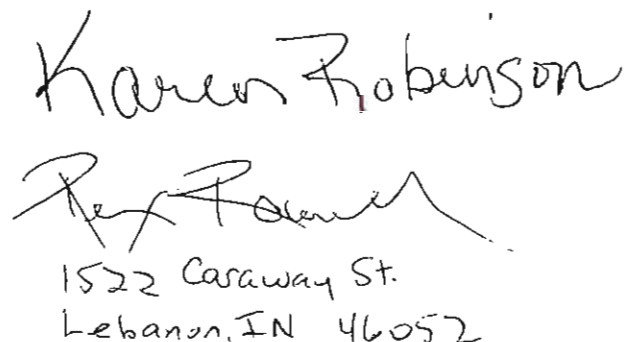 Karen Robinson
Rex
1522 Caraway St.
Lebanon, IN 46052